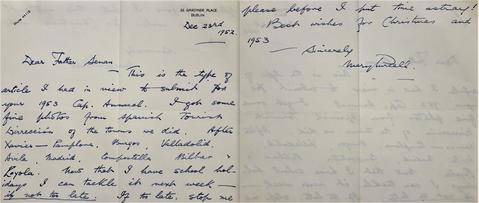 35 GARDINER PLACE
DUBLIN
Dec 23rd
1952
Dear Father Senan
— This is the type of
article I had in view to submit for
your 1953 Cap. Annual. I got some
fine photos from Spanish Tourist
Direccion of the towns we did. After
Xavier — Pamplona, Burgos, Valladolid,
Avila, Madrid, Compostella Bilbao &
Loyola. Now that I have school hol-
days I can tackle it next week —
if not too late. If too late, stop me
please before I put time astray!
Best wishes for Christmas and
1953
— Sincerely
Mary Purcell